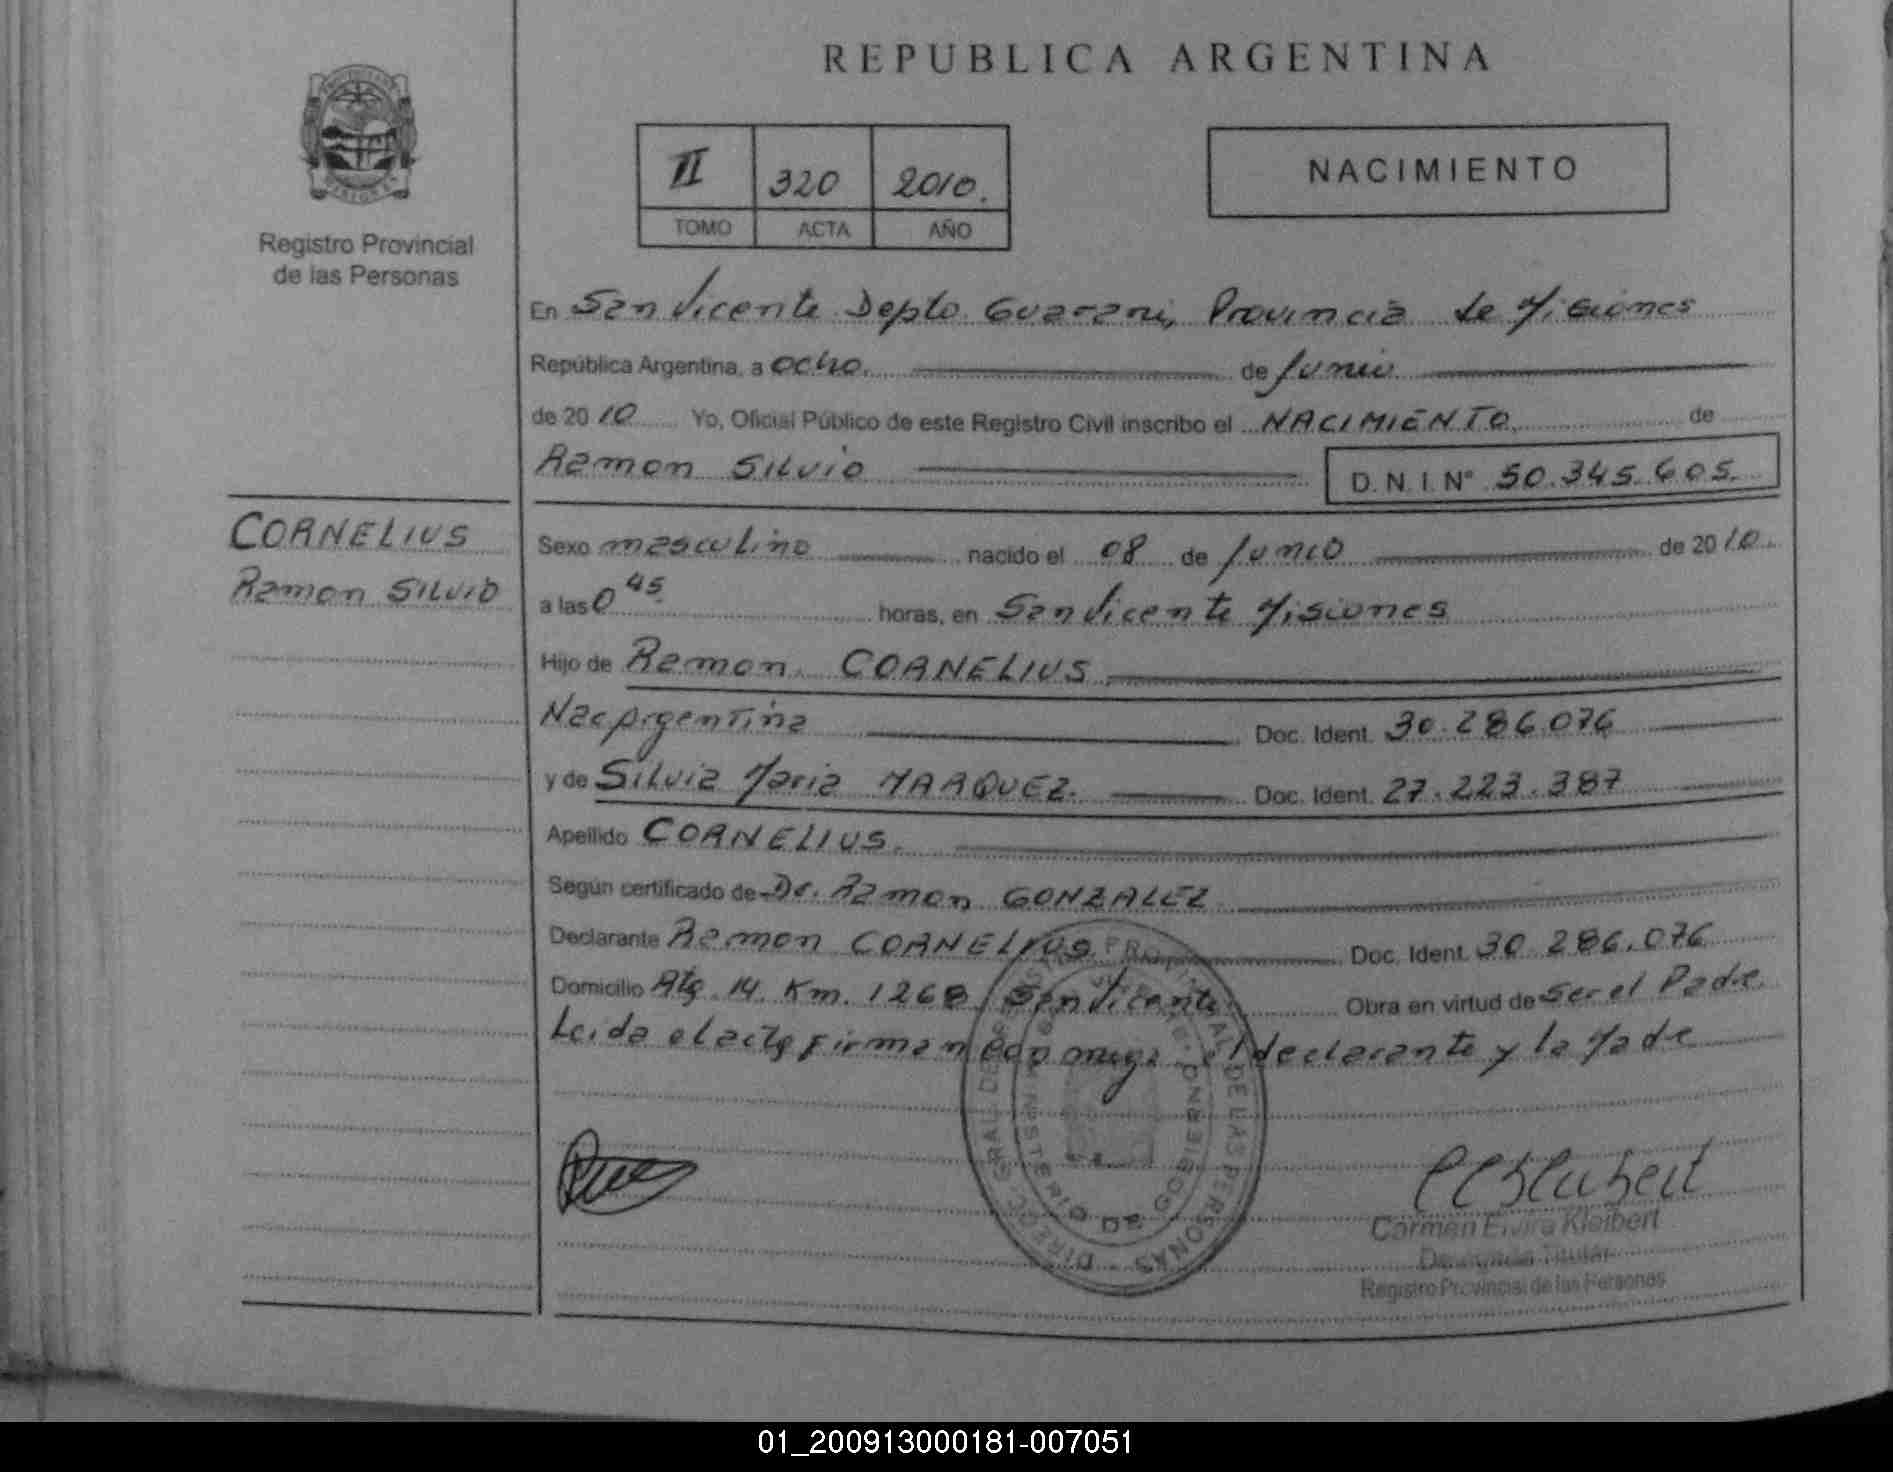 REPUBLICA ARGENTINA
II 320 2010.
TOMO ACTA AÑO
NACIMIENTO
Registro Provincial
de las Personas
En San Vicente Depto. Guarani, Provincia de Misiones
República Argentina, a ocho. de Junio
de 2010 Yo, Oficial Público de este Registro Civil inscribo el NACIMIENTO. de
Ramon SILVIO D.N.I. Nº 50.345.605.
CORNELIUS
Ramon SILVIO
Sexo masculino nacido el 08 de Junio de 2010.
a las 0 45. horas, en San Vicente Misiones
Hijo de Ramon. CORNELIUS
Nac Argentina Doc. Ident. 30.286.076
y de Silvia Maria MARQUEZ. Doc. Ident. 27.223.387
Apellido CORNELIUS.
Según certificado de Dr. Ramon GONZALEZ
Declarante Ramon CORNELIUS Doc. Ident. 30.286.076
Domicilio Rta. 14. Km. 1268. San Vicente Obra en virtud de Ser el Padre
Leida el acta firman el declarante y la Madre
DIRECC. GRAL. DEL REGISTRO PROVINCIAL DE LAS PERSONAS
MINISTERIO DE GOBIERNO
Carmen Elvira Kleibert
Delegada Titular
Registro Provincial de las Personas
01_200913000181-007051